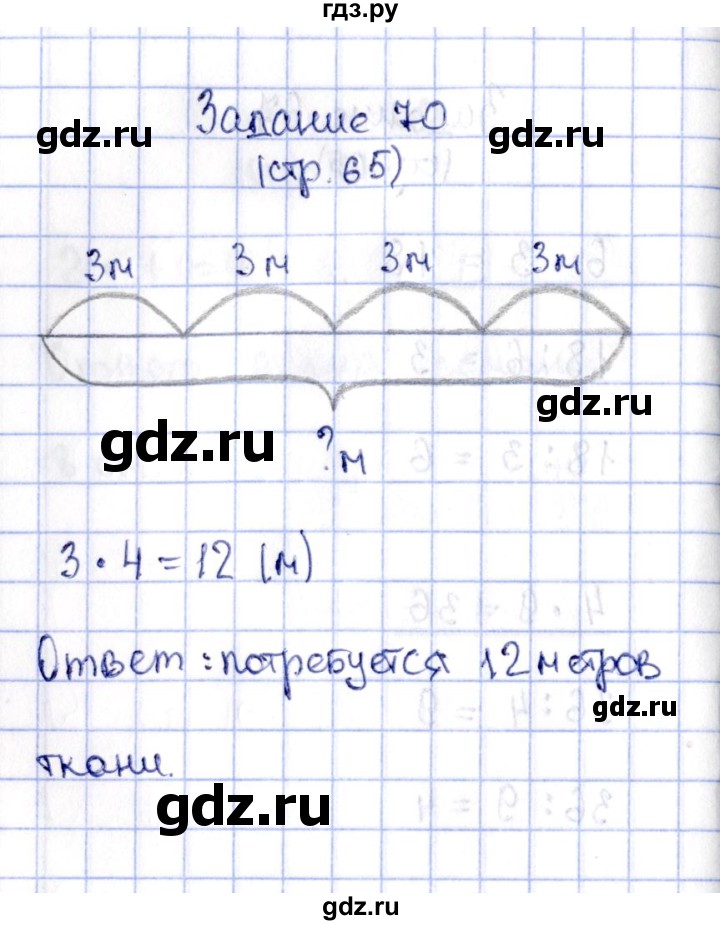 гдз.ру
Задание 70
gdz.ru gdz.ru
(стр. 65)
3м 3м 3м 3м
gdz.ru
gdz.ru
? м
3 · 4 = 12 (м)
Ответ: потребуется 12 метров
gdz.ru
ткани.
gdz.ru
gdz.ru